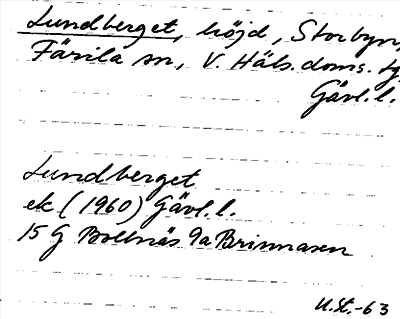 Lundberget, höjd, Storbyn,
Färila sn, V. Häls. doms. tg
Gävl. l.
Lundberget
ek (1960) Gävl. l.
15 G Bollnäs 9a Brinnaren
U.St.-63